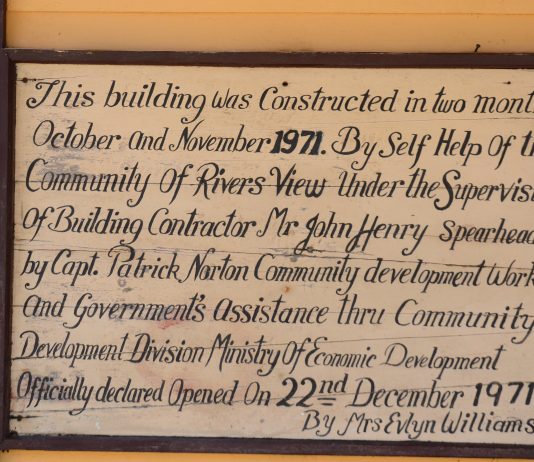 This building was Constructed in two mont
October and November 1971. By Self Help Of th
Community Of Rivers View Under the Supervis
Of Building Contractor Mr John Henry Spearhead
by Capt. Patrick Norton Community development Work
And Government's Assistance thru Community
Development Division Ministry Of Economic Development
Officially declared Opened On 22nd December 1971
By Mrs Evlyn Williams